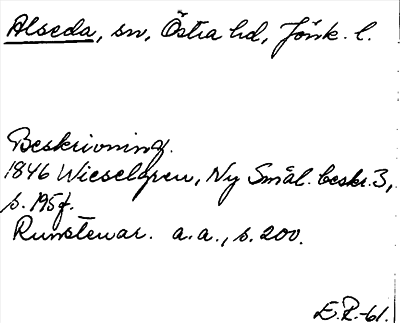 Alseda, sn, Östra hd, Jönk. l.
Beskrivning.
1846 Wieselgren, Ny Smål. beskr. 3,
s. 195f.
Runstenar. a.a., s. 200.
E.R.-61.